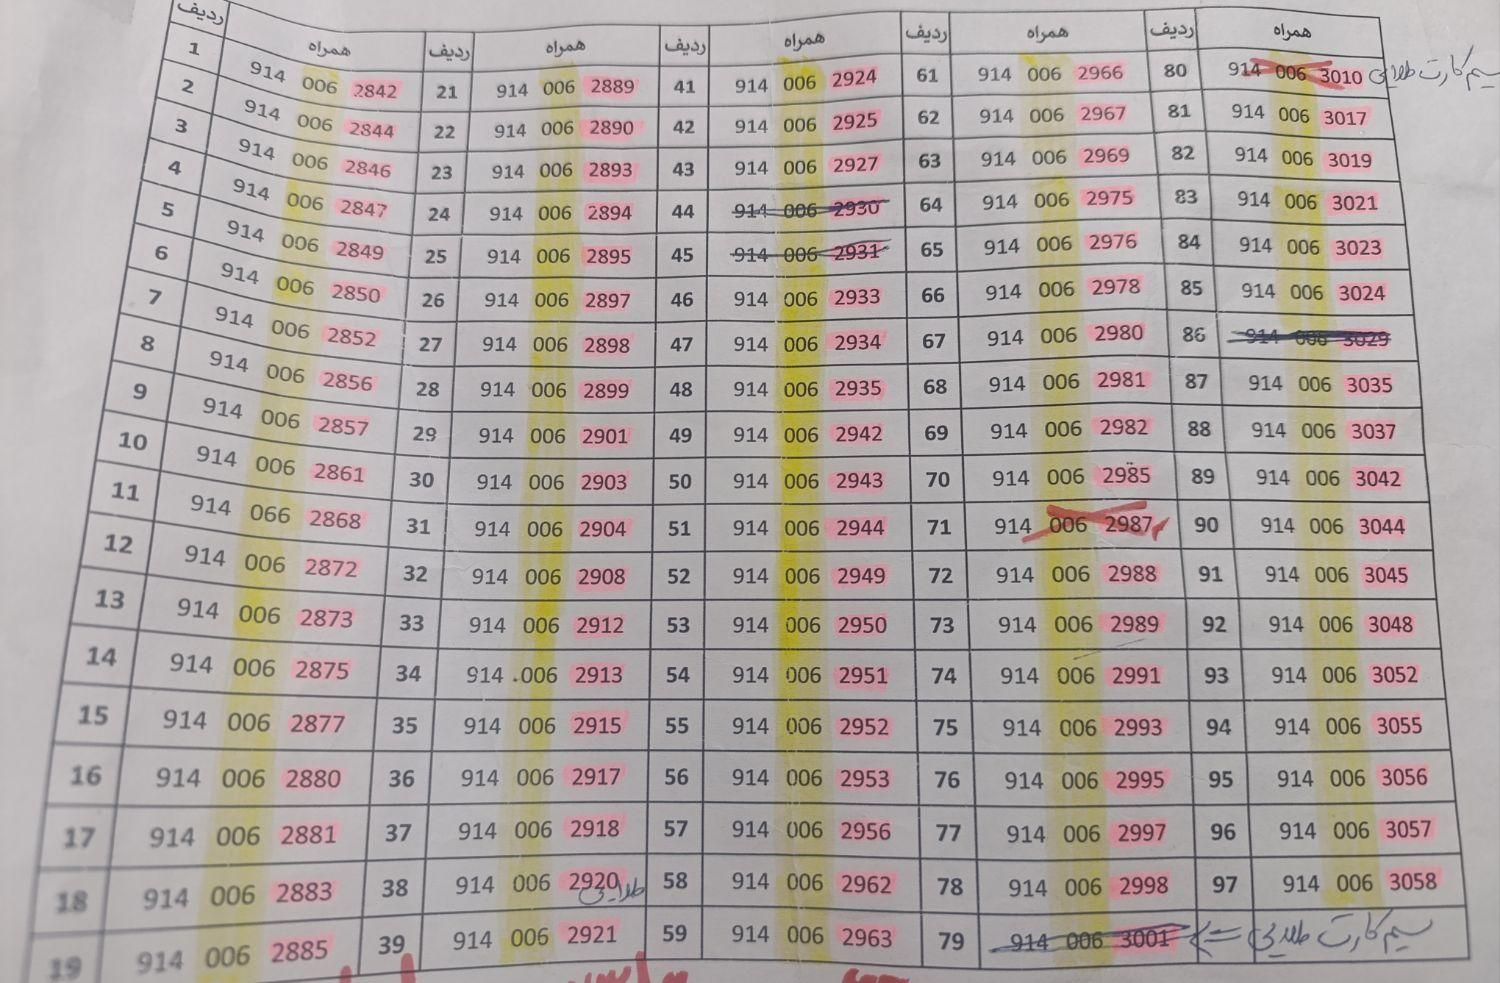 ردیف همراه ردیف همراه ردیف همراه ردیف همراه ردیف همراه
1 914 006 2842 21 914 006 2889 41 914 006 2924 61 914 006 2966 80 914 006 3010 سیم کارت طلایی
2 914 006 2844 22 914 006 2890 42 914 006 2925 62 914 006 2967 81 914 006 3017
3 914 006 2846 23 914 006 2893 43 914 006 2927 63 914 006 2969 82 914 006 3019
4 914 006 2847 24 914 006 2894 44 914 006 2930 64 914 006 2975 83 914 006 3021
5 914 006 2849 25 914 006 2895 45 914 006 2931 65 914 006 2976 84 914 006 3023
6 914 006 2850 26 914 006 2897 46 914 006 2933 66 914 006 2978 85 914 006 3024
7 914 006 2852 27 914 006 2898 47 914 006 2934 67 914 006 2980 86 914 006 3029
8 914 006 2856 28 914 006 2899 48 914 006 2935 68 914 006 2981 87 914 006 3035
9 914 006 2857 29 914 006 2901 49 914 006 2942 69 914 006 2982 88 914 006 3037
10 914 006 2861 30 914 006 2903 50 914 006 2943 70 914 006 2985 89 914 006 3042
11 914 066 2868 31 914 006 2904 51 914 006 2944 71 914 006 2987 90 914 006 3044
12 914 006 2872 32 914 006 2908 52 914 006 2949 72 914 006 2988 91 914 006 3045
13 914 006 2873 33 914 006 2912 53 914 006 2950 73 914 006 2989 92 914 006 3048
14 914 006 2875 34 914 006 2913 54 914 006 2951 74 914 006 2991 93 914 006 3052
15 914 006 2877 35 914 006 2915 55 914 006 2952 75 914 006 2993 94 914 006 3055
16 914 006 2880 36 914 006 2917 56 914 006 2953 76 914 006 2995 95 914 006 3056
17 914 006 2881 37 914 006 2918 57 914 006 2956 77 914 006 2997 96 914 006 3057
18 914 006 2883 38 914 006 2920 طلایی 58 914 006 2962 78 914 006 2998 97 914 006 3058
19 914 006 2885 39 914 006 2921 59 914 006 2963 79 914 006 3001 <= سیم کارت طلایی